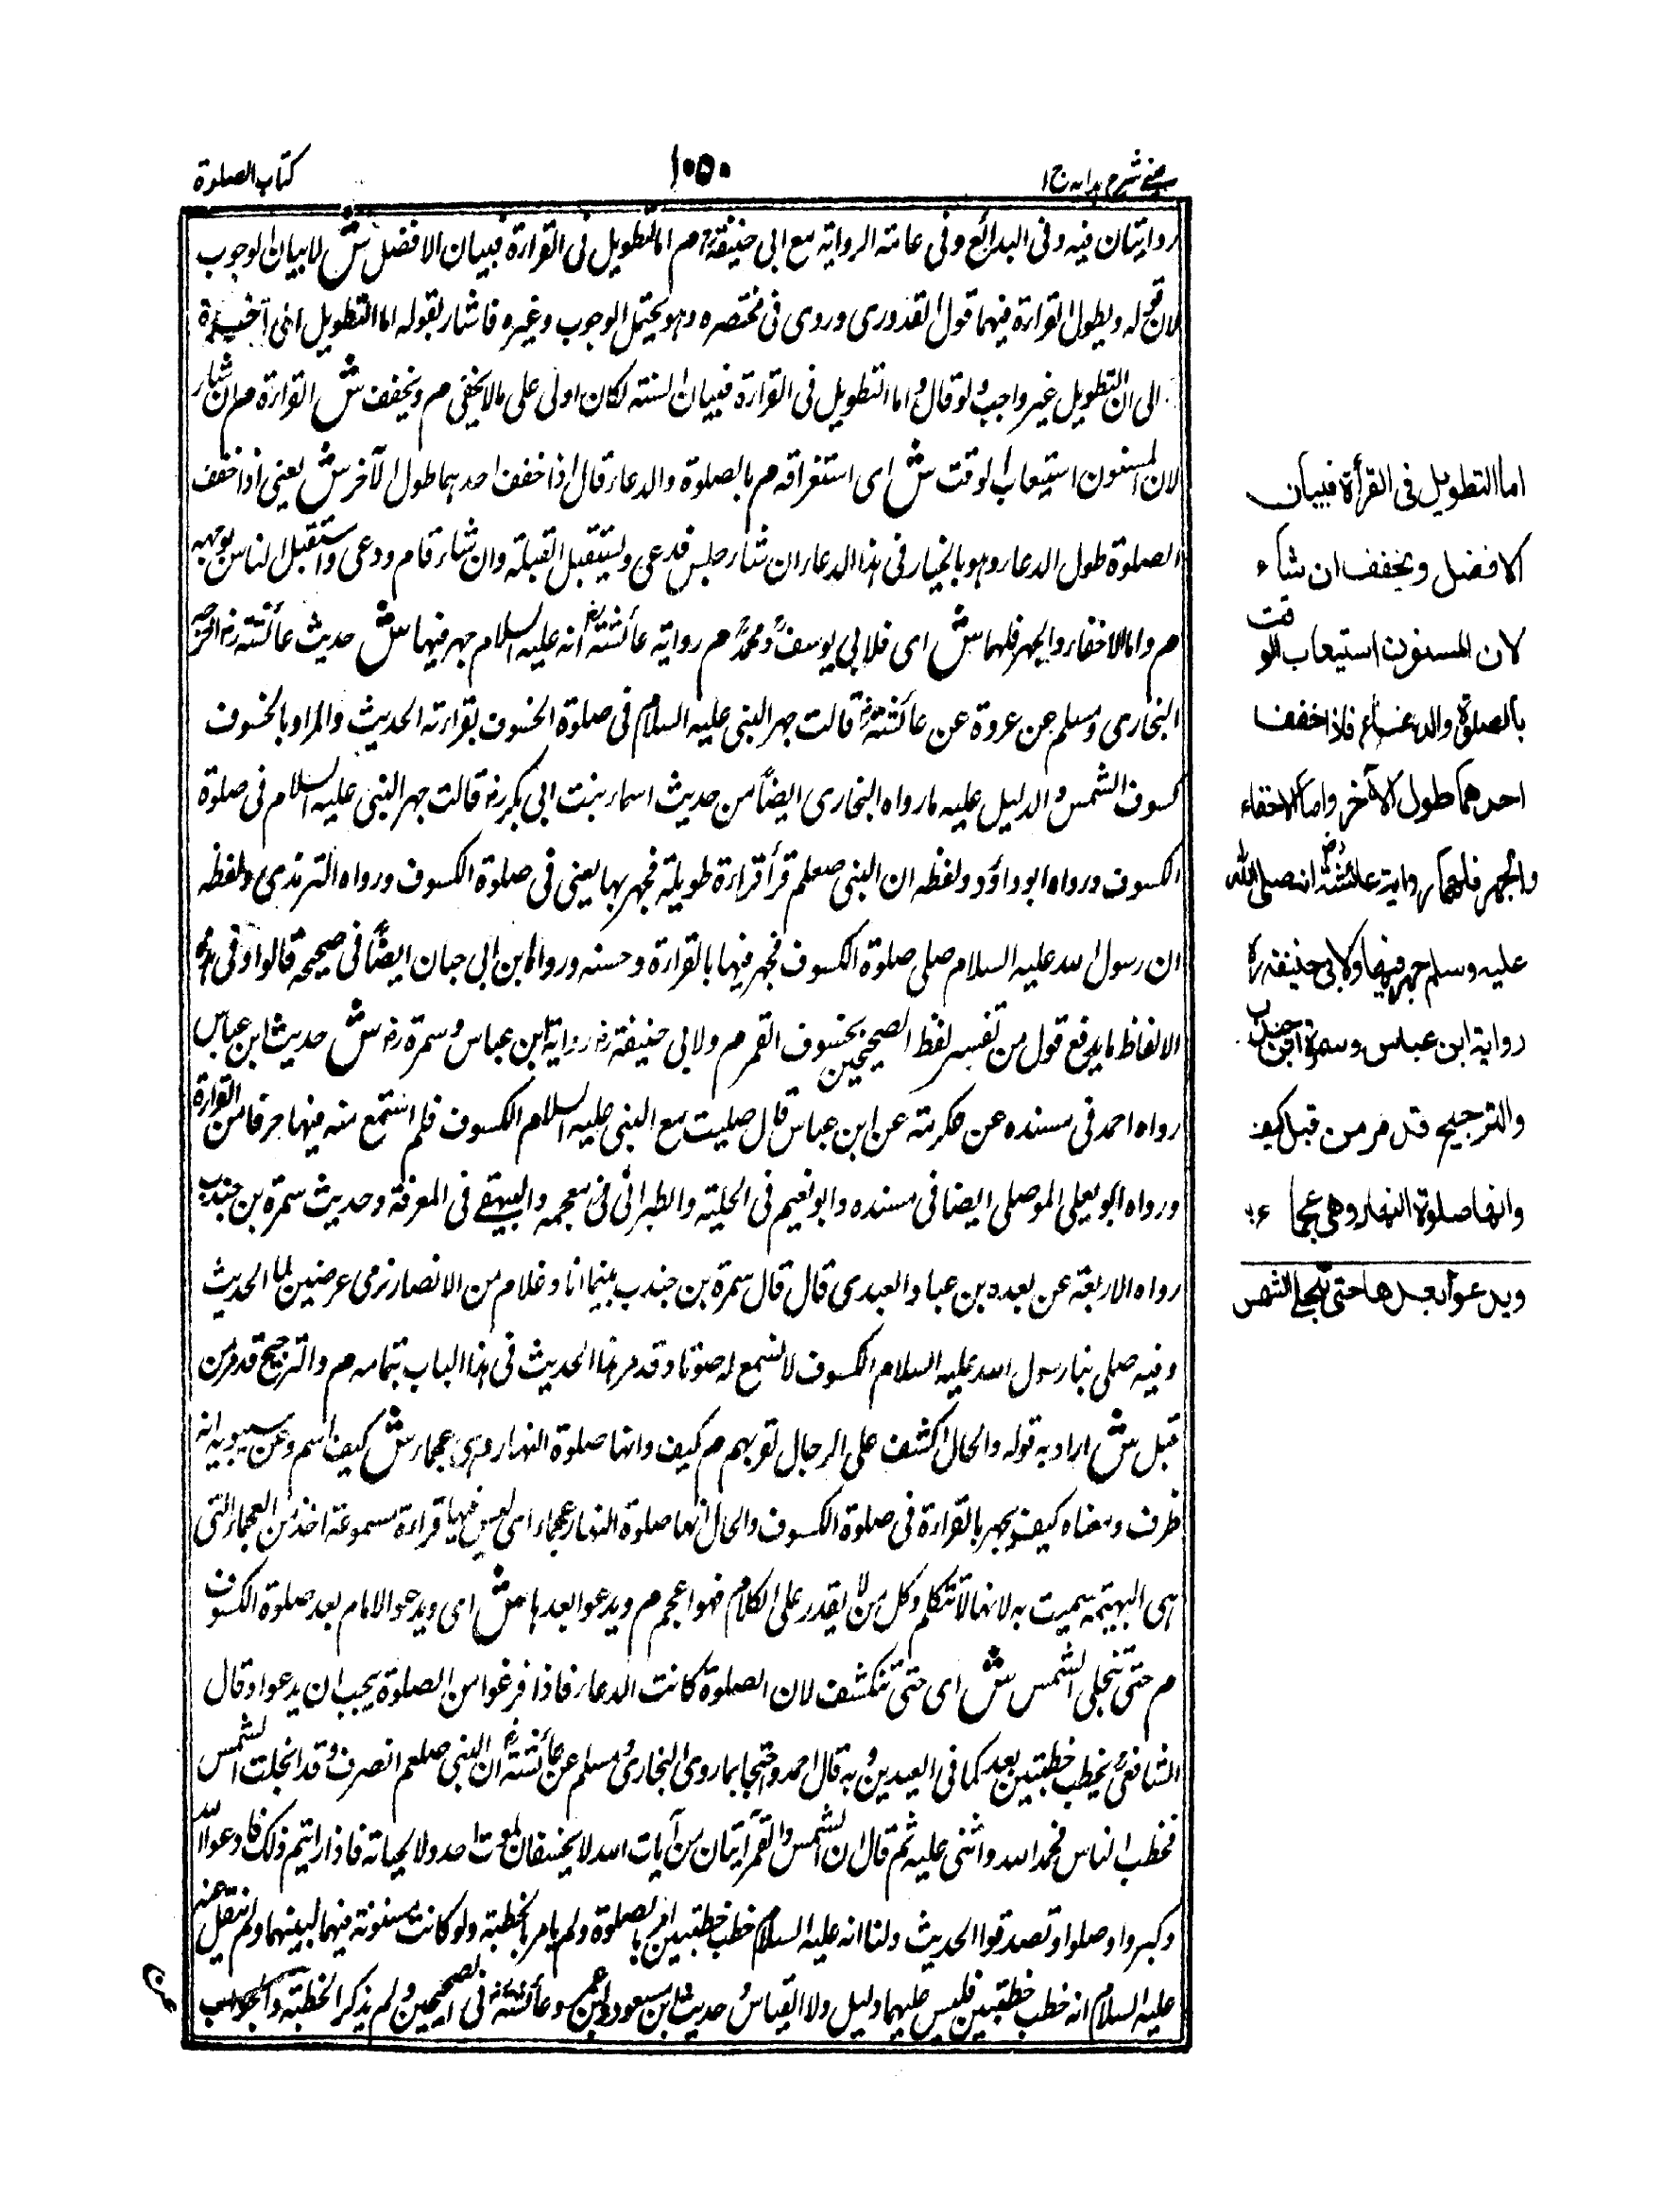 عيني شرح هدايه ج ا
١٠٥٠
كتاب الصلوة
روايتان فيه وفى البدائع وفى عامة الرواية مع ابى حنيفة م اما التطويل فى القراءة فبيان الافضل ش لا بيان الوجوب
لان قوله ويطول القراءة فيهما قول القدورى وروى فى مختصره وهو يحتمل الوجوب وغيره فاشار بقوله اما التطويل الى آخره
الى ان التطويل غير واجب ولو قال واما التطويل فى القراءة فبيان السنة لكان اولى على ما لا يخفى م ويخفف ش القراءة م ان شاء
لان المسنون استيعاب الوقت ش اى استغراقه م بالصلوة والدعاء قال اذا خفف احدهما طول الآخر ش يعنى اذا خفف
الصلوة طول الدعاء وهو بالخيار فى هذا الدعاء ان شاء جلس فدعى ويستقبل القبلة وان شاء قام ودعى واستقبل الناس بوجهه
م واما الاخفاء والجهر فلهما ش اى فلابى يوسف ومحمد م رواية عائشة انه عليه السلام جهر فيها ش حديث عائشة رض اخرجه
البخارى ومسلم عن عروة عن عائشة قالت جهر النبى عليه السلام فى صلوة الخسوف بقراءته الحديث والمراد بالخسوف
كسوف الشمس والدليل عليه ما رواه البخارى ايضًا من حديث اسماء بنت ابى بكر رض قالت جهر النبى عليه السلام فى صلوة
الكسوف ورواه ابو داؤد ولفظه ان النبى صلعم قرأ قراءة طويلة فجهر بها يعنى فى صلوة الكسوف ورواه الترمذى ولفظه
ان رسول الله عليه السلام صلى صلوة الكسوف فجهر فيها بالقراءة وحسنه ورواه ابن ابى حبان ايضًا فى صحيحه قالوا وفى هذه
الالفاظ ما يدفع قول من تفسير لفظ الصحيحين بخسوف القمر م ولابى حنيفة رض رواية ابن عباس وسمرة رض ش حديث ابن عباس
رواه احمد فى مسنده عن عكرمة عن ابن عباس قال صليت مع النبى عليه السلام الكسوف فلم استمع منه فيها حرفا من القراءة
ورواه ابو يعلى الموصلى ايضا فى مسنده وابو نعيم فى الحلية والطبرانى فى معجمه والبيهقى فى المعرفة وحديث سمرة بن جندب
رواه الاربعة عن بعده بن عباد العبدى قال قال سمرة بن جندب بينما انا وغلام من الانصار نرمى عرضين لنا الحديث
وفيه صلى بنا رسول الله عليه السلام الكسوف لا نسمع له صوتا وقد مر هذا الحديث فى هذا الباب بتمامه م والترجيح قد مر من
قبل ش اراد به قوله والحال اكشف على الرجال لقربهم م كيف وانها صلوة النهار وهى عجماء ش كيف اسم وعن سيبويه انه
ظرف ومعناه كيف يجهر بالقراءة فى صلوة الكسوف والحال انها صلوة النهار عجماء اى ليس فيها قراءة مسموعة اخذ من العجماء التى
هى البهيمة سميت به لانها لا تتكلم وكل من لا يقدر على الكلام فهو اعجم م ويدعو بعدها ش اى ويدعو الامام بعد صلوة الكسوف
م حتى تنجلى الشمس ش اى حتى تنكشف لان الصلوة كانت الدعاء فاذا فرغوا من الصلوة يجب ان يدعوا وقال
الشافعى يخطب خطبتين بعد كما فى العيدين وبه قال احمد واحتجا بما روى البخارى ومسلم عن عائشة ان النبى صلعم انصرف وقد انجلت الشمس
فخطب الناس فحمد الله واثنى عليه ثم قال ان الشمس والقمر آيتان من آيات الله لا يخسفان لموت احد ولا لحياته فاذا رايتم ذلك فادعوا الله
وكبروا وصلوا وتصدقوا الحديث ولنا انه عليه السلام خطب خطبتين امر بالصلوة ولم يامر بالخطبة ولو كانت مسنونة فيهما لبينهما ولم ينقل عنه
عليه السلام انه خطب خطبتين فليس عليهما دليل ولا القياس وحديث ابن مسعود وابن عمر وعائشة فى الصحيحين ولم يذكر الخطبة والجواب
عن
اما التطويل فى القرأة فبيان
الافضل ويخفف ان شاء
لان المسنون استيعاب الوقت
بالصلوة والدعاء فاذا خفف
احدهما طول الآخر واما الاخفاء
والجهر فلهما رواية عائشة انه صلى الله
عليه وسلم جهر فيها ولابى حنيفة ره
رواية ابن عباس وسمرة بن جندب
والترجيح قد مر من قبل كيف
وانها صلوة النهار وهى عجماء
ويدعوا بعدها حتى تنجلى الشمس